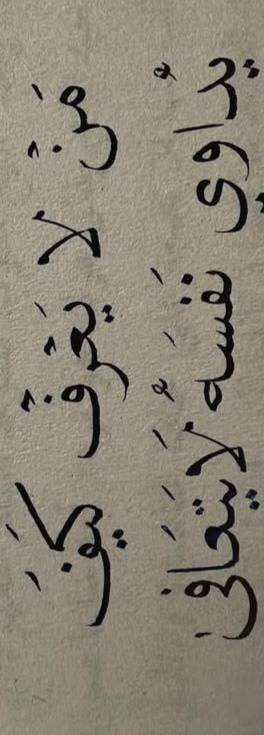 مَنْ لا يَعْرفْ كَيفَ
يُداوي نَفسَهُ لَا يَتَعافى